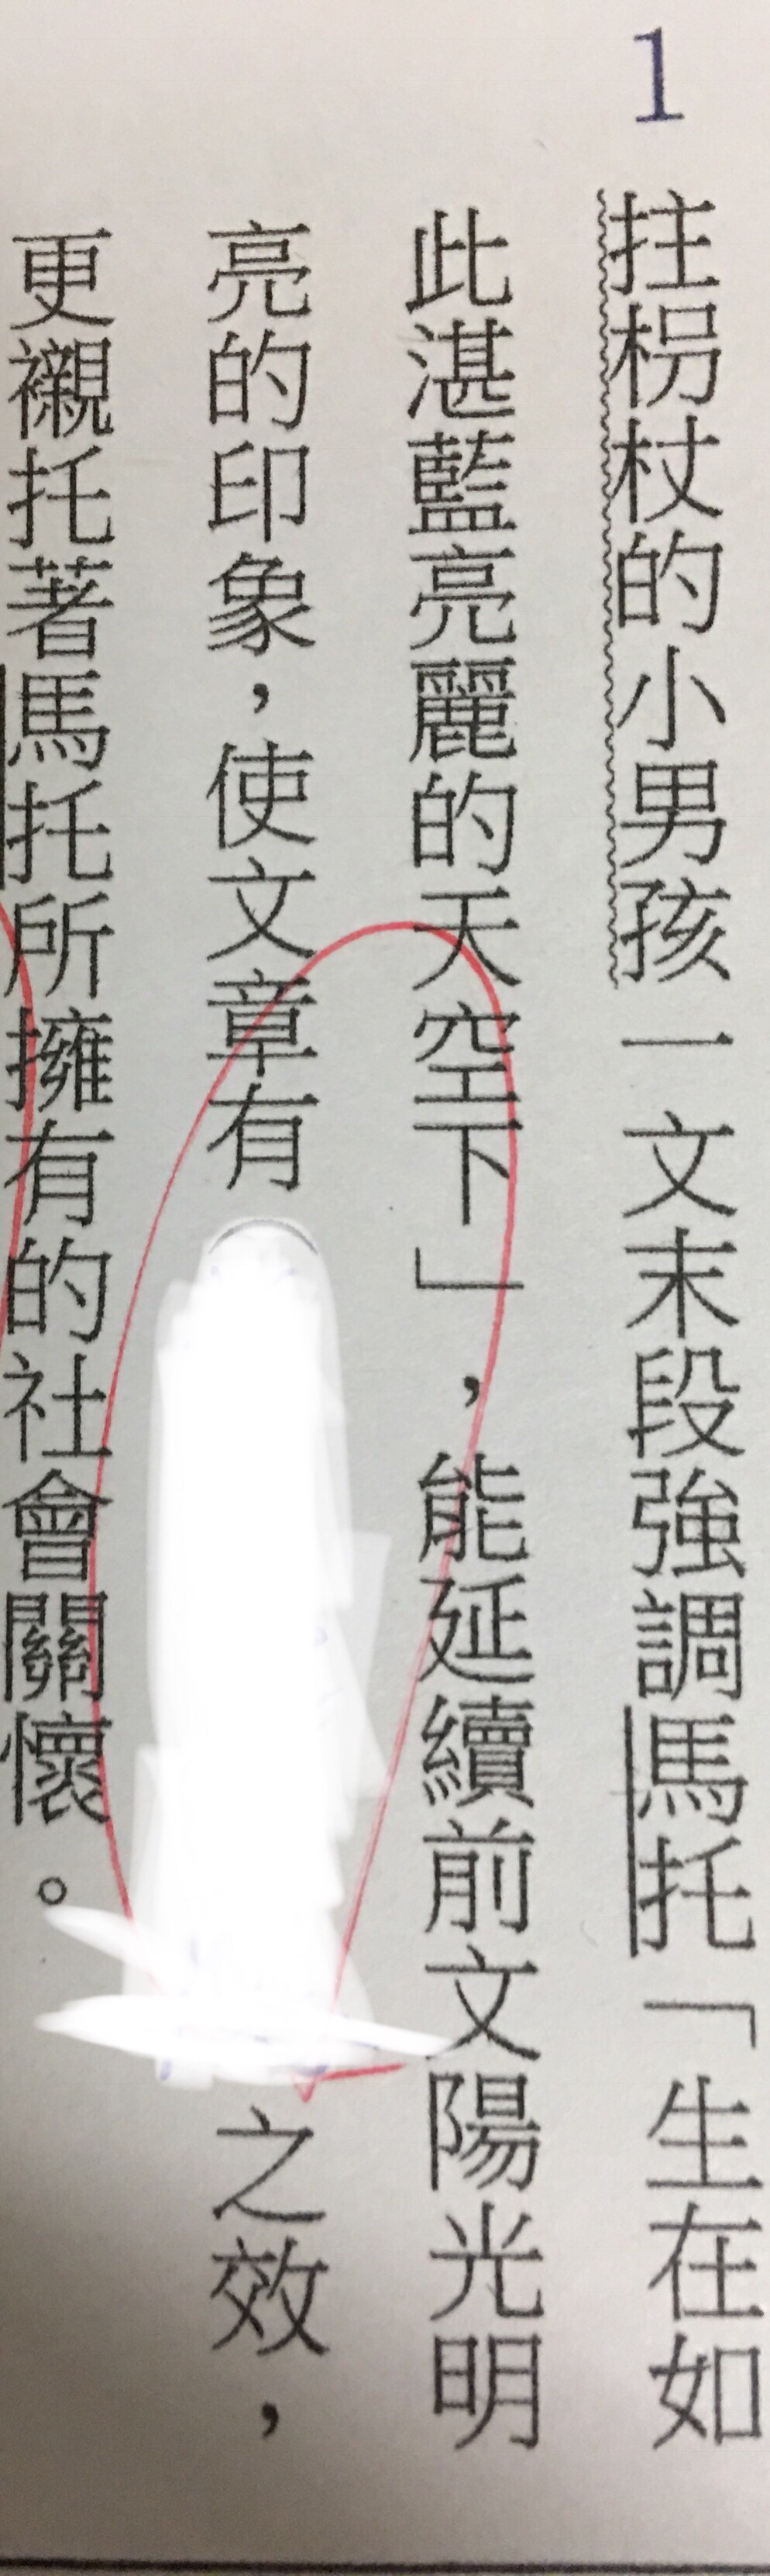 1
拄柺杖的小男孩一文末段強調馬托「生在如
此湛藍亮麗的天空下」，能延續前文陽光明
亮的印象，使文章有
之效，
更襯托著馬托所擁有的社會關懷。